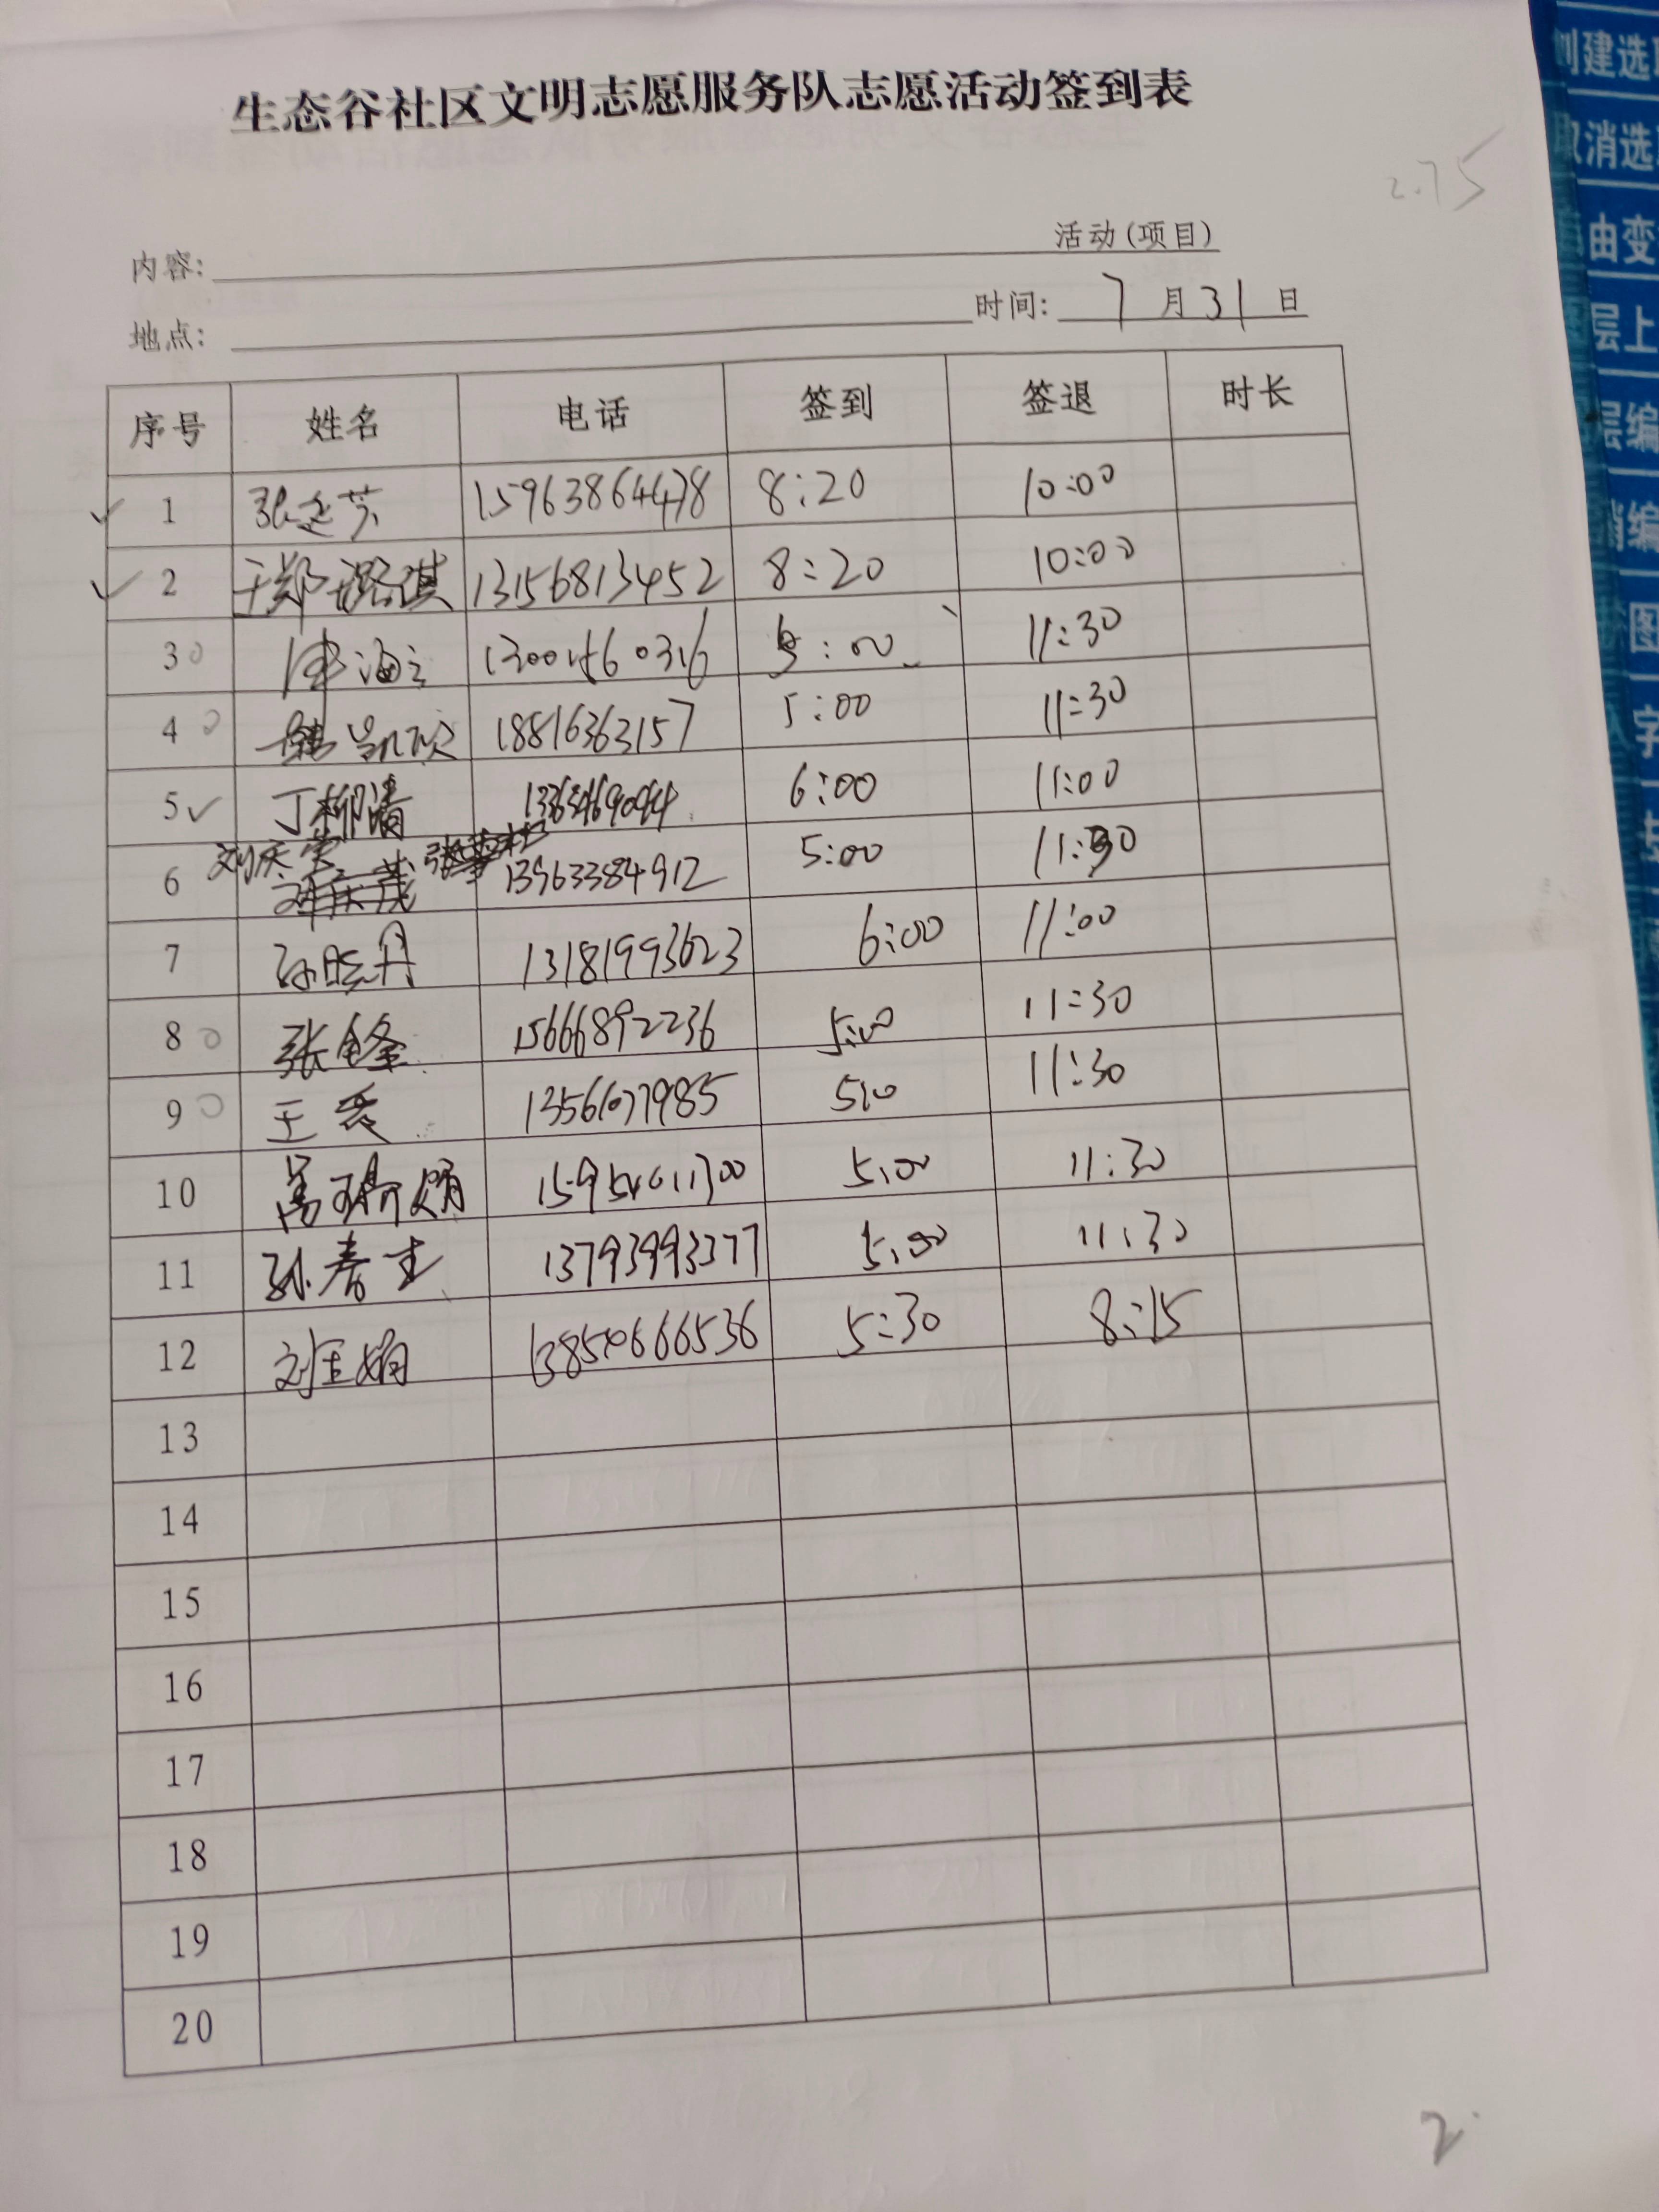 生态谷社区文明志愿服务队志愿活动签到表
2.75
内容: 活动(项目)
地点: 时间: 7月31日
序号 姓名 电话 签到 签退 时长
1 张 芳 15963864478 8:20 10:00
2 于郑璐琪 13156813452 8:20 10:00
3 :00 11:30
4 18816363157 5:00 11:30
5 丁柳清 6:00 11:00
6 刘庆 13963384912 5:00 11:30
7 孙晓丹 13181993623 6:00 11:00
8 张金峰 15666892236 5:00 11:30
9 王 13561077985 5:00 11:30
10 高 5:00 11:30
11 孙春 13793993377 5:00 11:30
12 刘 娟 13854666536 5:30 8:15
13
14
15
16
17
18
19
20
2
创建选
取消选
由变
层上
层编
编
图
字